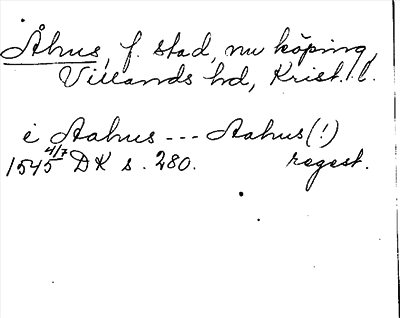 Åhus, f. stad, nu köping,
Villands hd, Krist. l.
i Aahus --- Aahus(!)
1545 4/7 DK s. 280. regest.